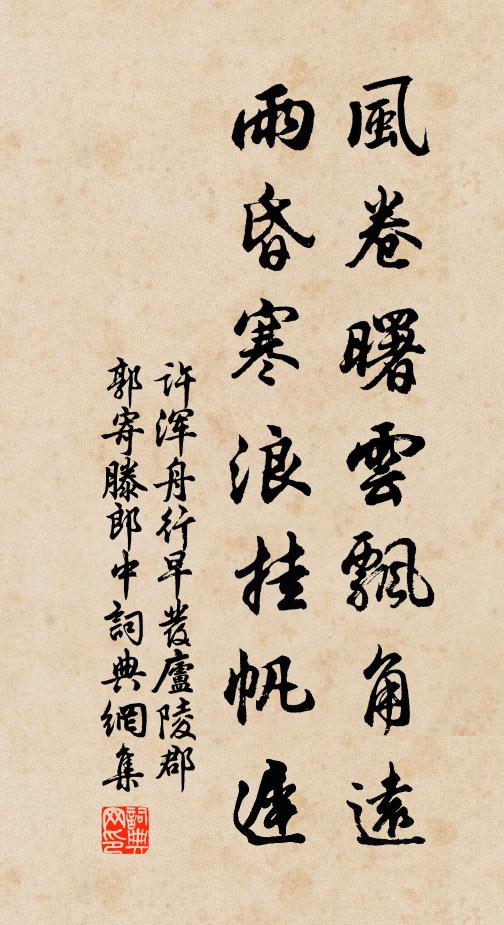 風卷曙雲飄角遠
雨昏寒浪挂帆遲
許渾舟行早發廬陵郡
郭寄滕郎中詞典網集
詞典
网印